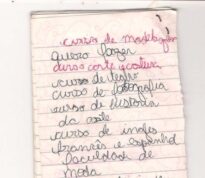 curso de modelagem
quero fazer
curso corte e costura
curso de teatro
curso de fotografia
curso de historia
da arte
curso de ingles
francês e espanhol
faculdade de
moda